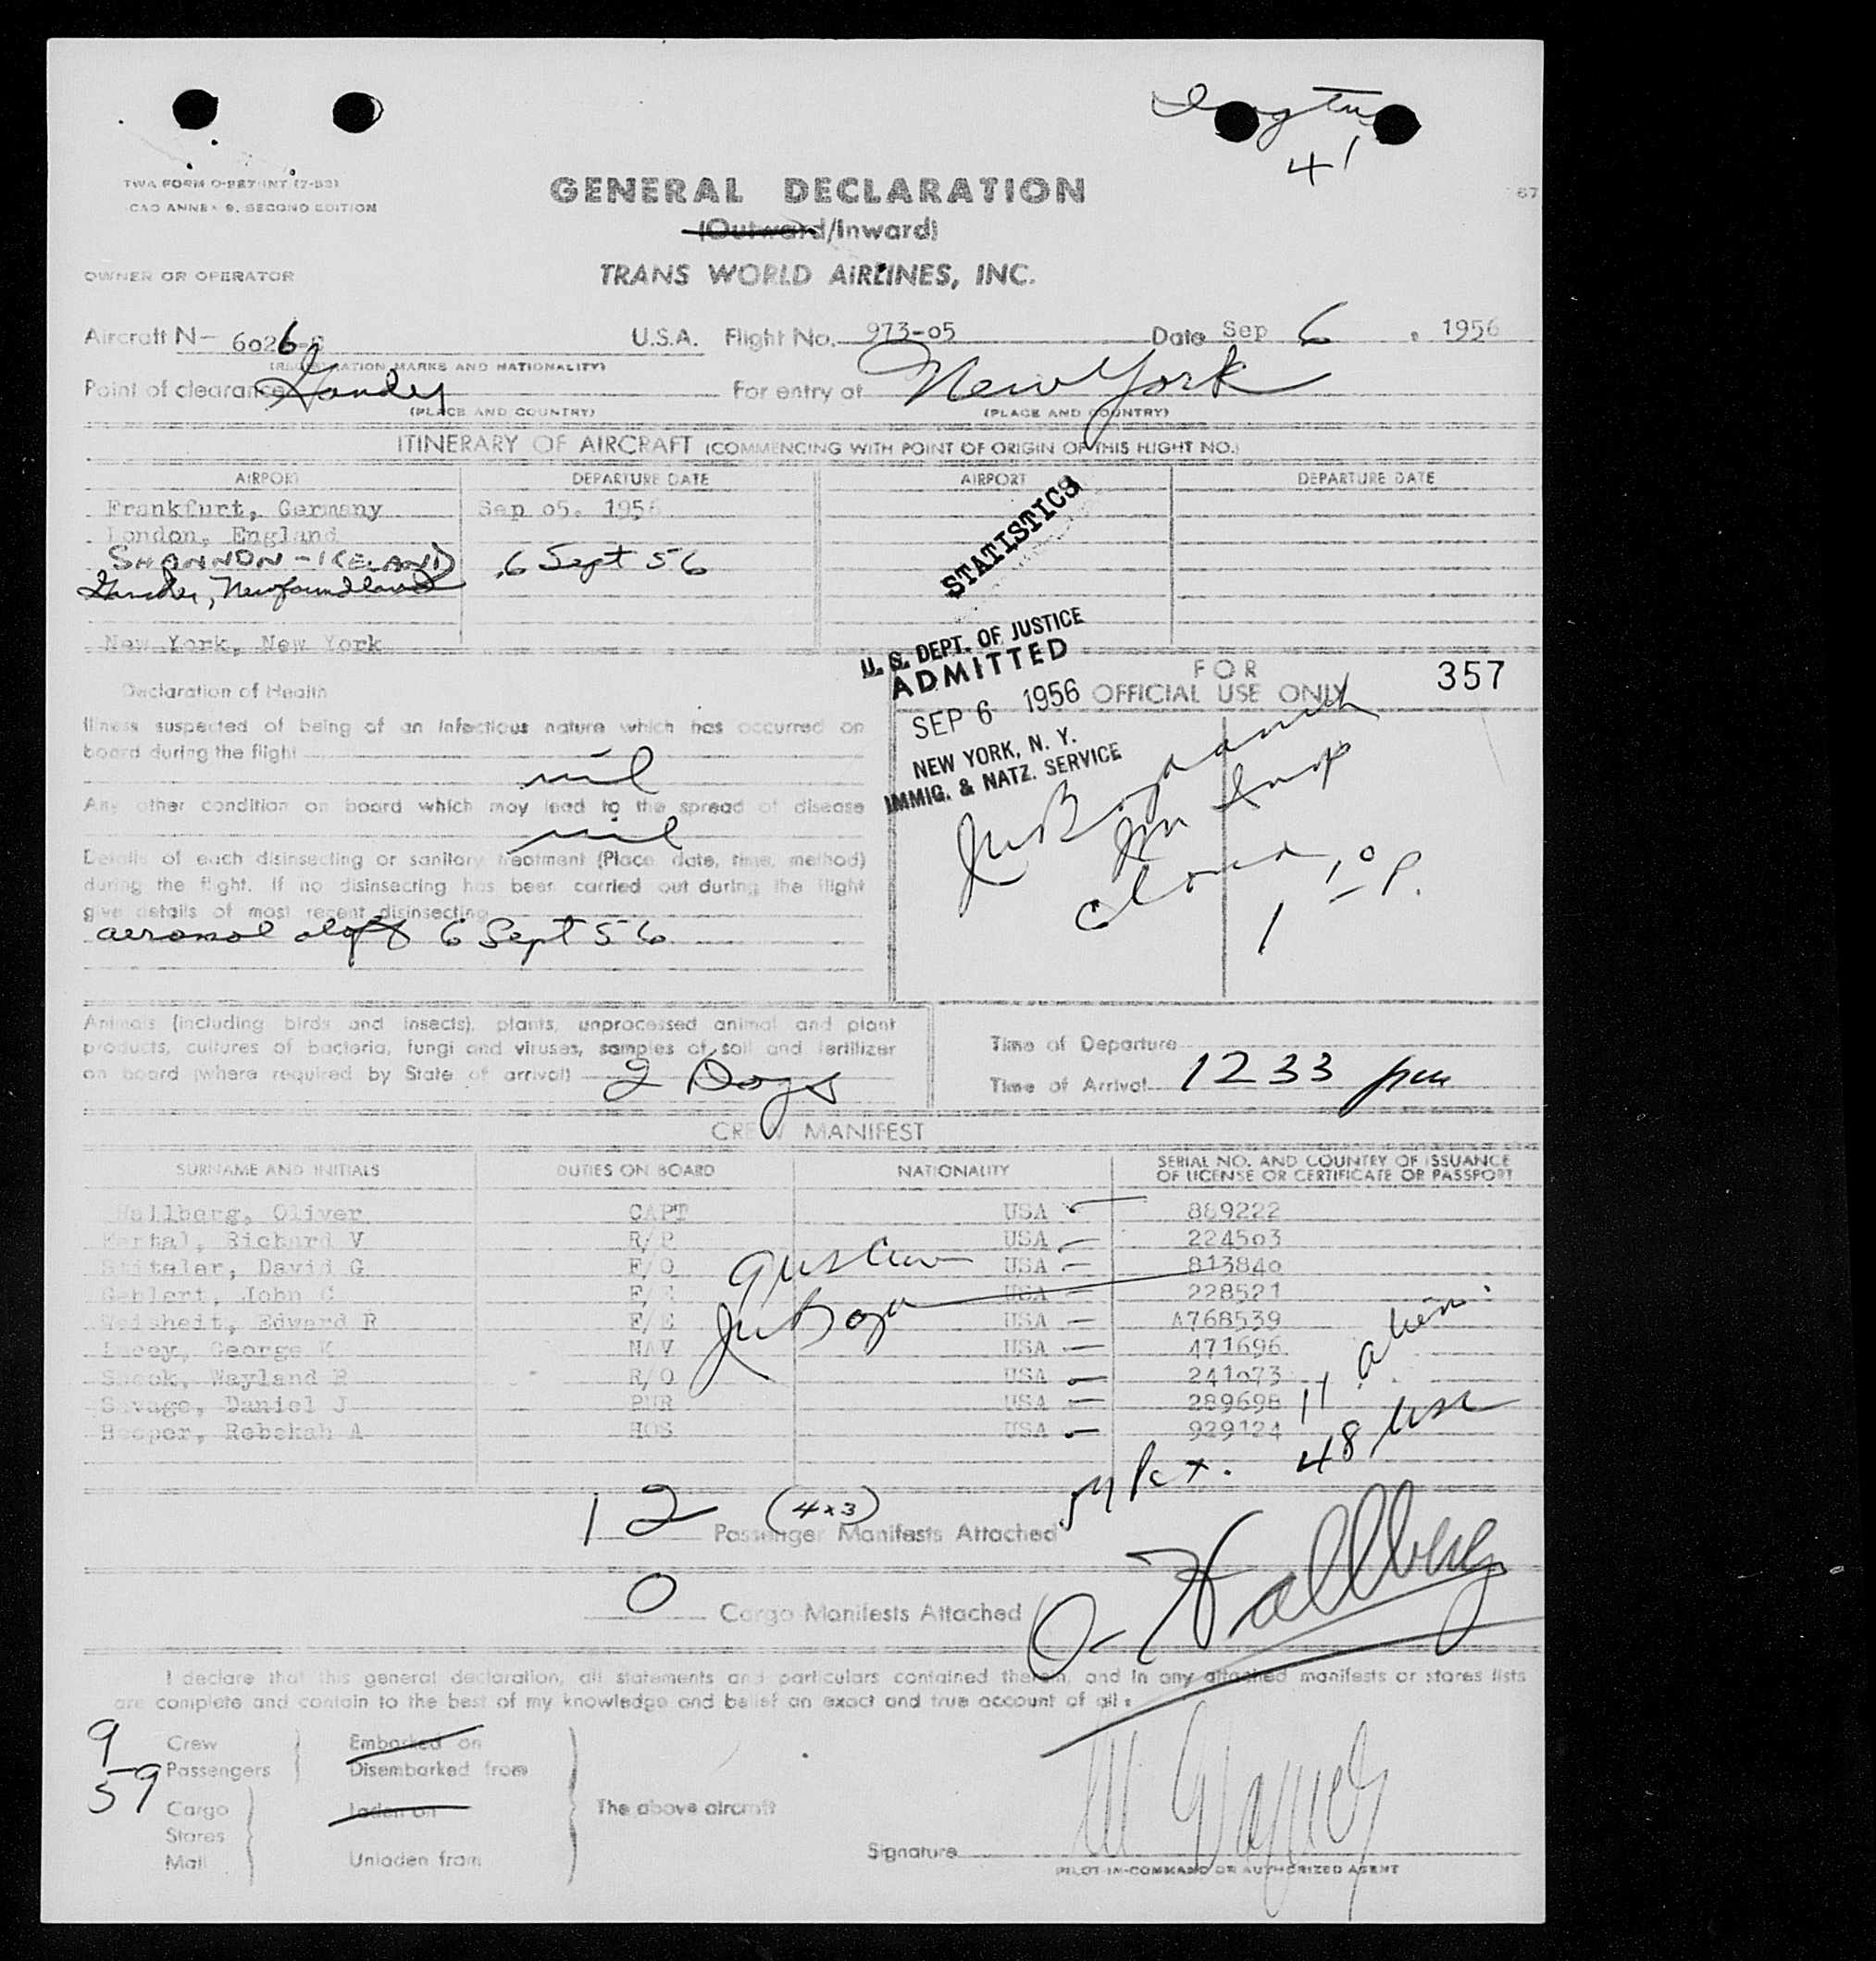 41
TWA FORM O-987-INT (7-53)
ICAO ANNEX 9, SECOND EDITION
67
GENERAL DECLARATION
(Outward/Inward)
OWNER OR OPERATOR
TRANS WORLD AIRLINES, INC.
Aircraft N- 6026-C U.S.A. Flight No. 973-05 Date Sep 6, 1956
(REGISTRATION MARKS AND NATIONALITY)
Point of clearance Gander For entry at New York
(PLACE AND COUNTRY) (PLACE AND COUNTRY)
ITINERARY OF AIRCRAFT (COMMENCING WITH POINT OF ORIGIN OF THIS FLIGHT NO.)
AIRPORT DEPARTURE DATE AIRPORT DEPARTURE DATE
Frankfurt, Germany Sep 05. 1956
London, England
SHANNON - ICELAND 6 Sept 56
Gander, Newfoundland
New York, New York
STATISTICS
U. S. DEPT. OF JUSTICE
ADMITTED
SEP 6 1956
NEW YORK, N. Y.
IMMIG. & NATZ. SERVICE
FOR
OFFICIAL USE ONLY
357
Declaration of Health
Illness suspected of being of an infectious nature which has occurred on
board during the flight
nil
Any other condition on board which may lead to the spread of disease
nil
Details of each disinsecting or sanitary treatment (Place, date, time, method)
during the flight. If no disinsecting has been carried out during the flight
give details of most recent disinsecting
aerosol aloft 6 Sept 56
Insp
1
Animals (including birds and insects), plants, unprocessed animal and plant
products, cultures of bacteria, fungi and viruses, samples of soil and fertilizer
on board (where required by State of arrival) 2 Dogs
Time of Departure
Time of Arrival 1233 pm
CREW MANIFEST
SURNAME AND INITIALS DUTIES ON BOARD NATIONALITY SERIAL NO. AND COUNTRY OF ISSUANCE OF LICENSE OR CERTIFICATE OR PASSPORT
Hallberg, Oliver CAPT USA 889222
Richard V R/P USA 224503
Stiteler, David G F/O USA 813840
Gehlert, John C F/E USA 228521
Weisheit, Edward R F/E USA A768539
Lacey, George K NAV USA 471696
Wayland R R/O USA 241073
Savage, Daniel J PUR USA 289698
Rebekah A HOS USA 929124
11 alien
48 usc
12 (4x3) Passenger Manifests Attached
0 Cargo Manifests Attached
O Hallberg
I declare that this general declaration, all statements and particulars contained therein, and in any attached manifests or stores lists
are complete and contain to the best of my knowledge and belief an exact and true account of all:
9 Crew Embarked on
59 Passengers Disembarked from
Cargo Laden on The above aircraft
Stores
Mail Unladen from
Signature
PILOT-IN-COMMAND OR AUTHORIZED AGENT